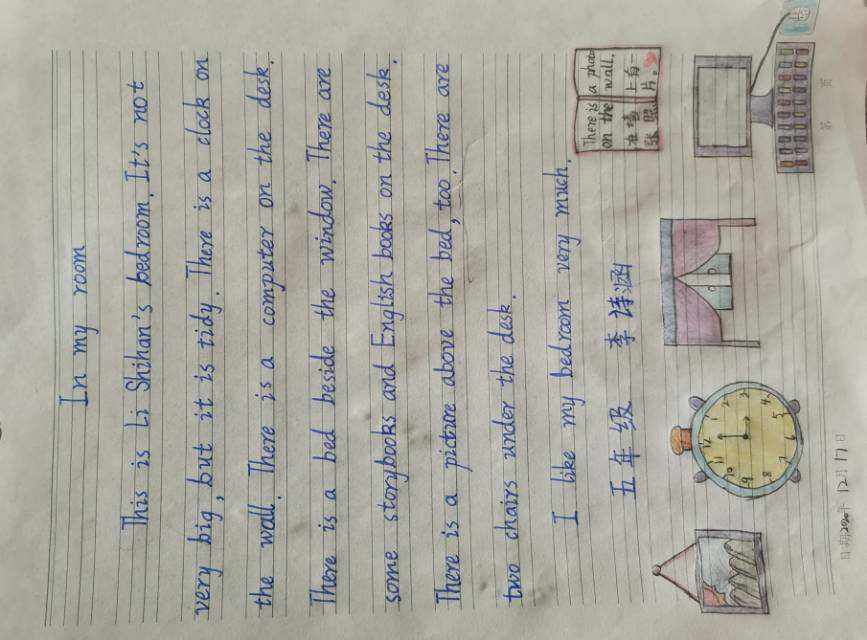 In my room
This is Li Shihan's bedroom. It's not
very big, but it is tidy. There is a clock on
the wall. There is a computer on the desk.
There is a bed beside the window. There are
some storybooks and English books on the desk.
There is a picture above the bed, too. There are
two chairs under the desk.
I like my bedroom very much.
五年级 李诗涵
There is a photo
on the wall.
在墙上有一
张照片。
12
1
2
3
4
5
6
7
8
9
10
11
日期2020年12月17日
第 页